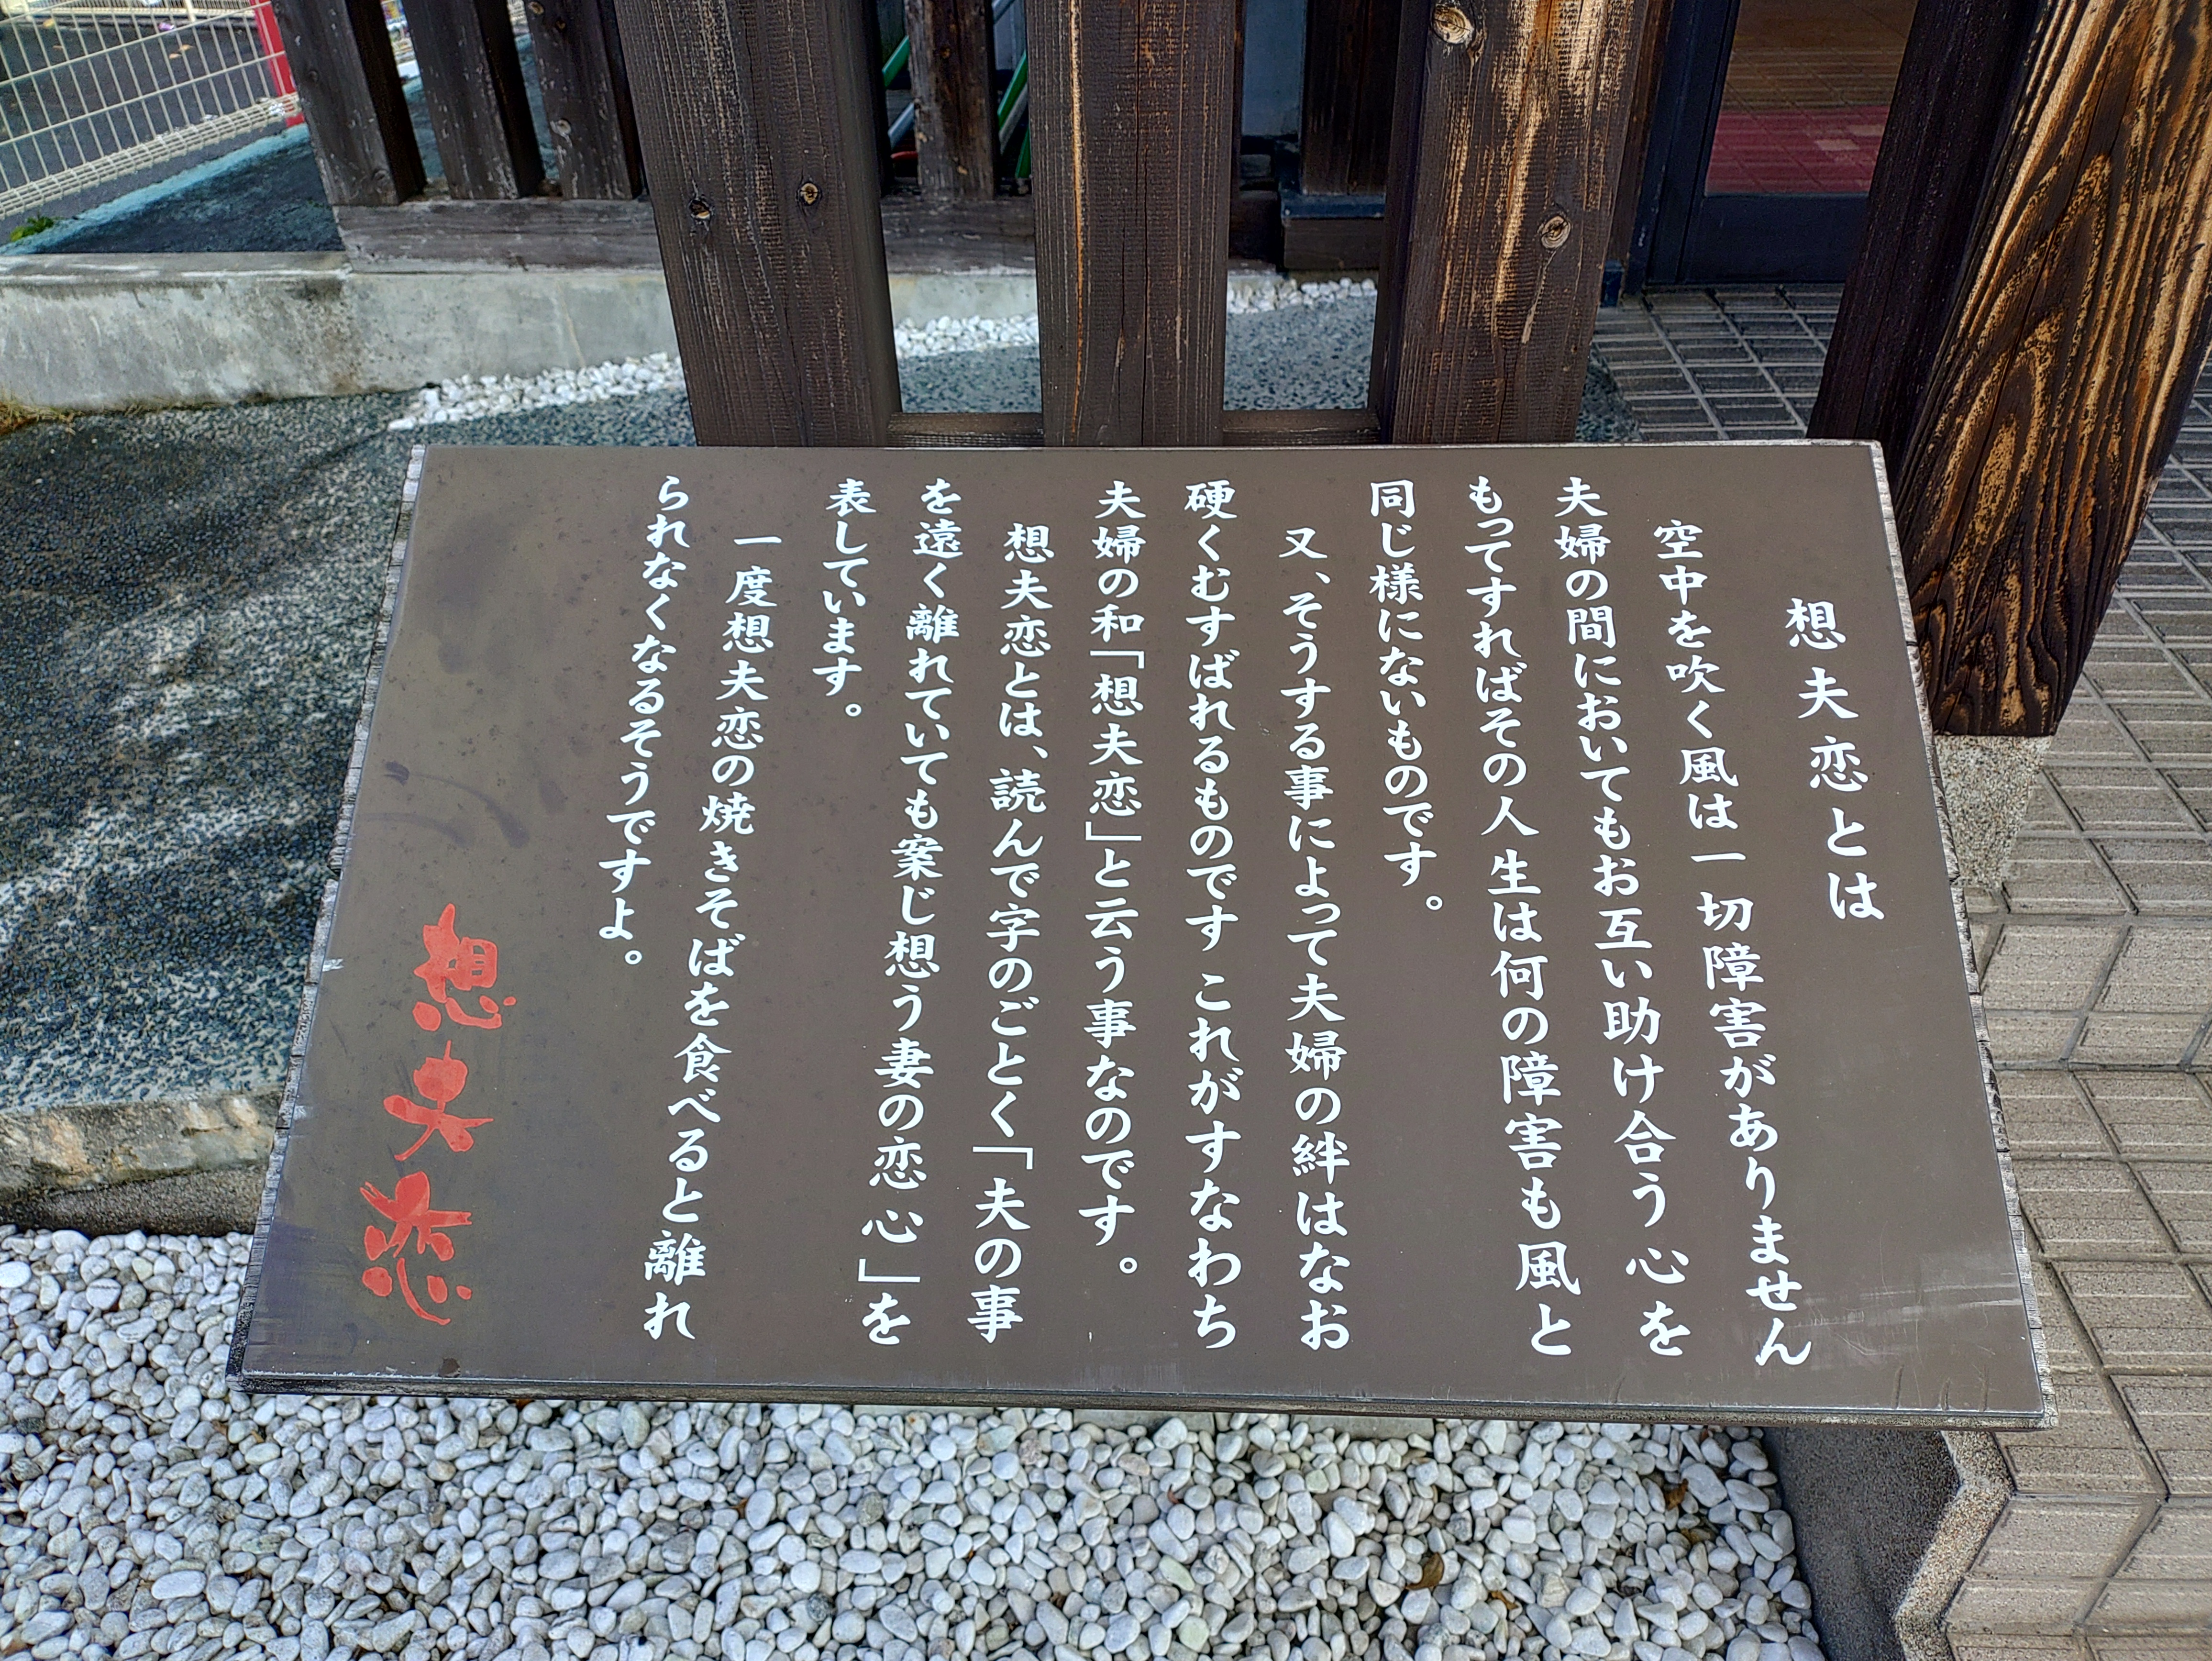 想夫恋とは
空中を吹く風は一切障害がありません
夫婦の間においてもお互い助け合う心を
もってすればその人生は何の障害も風と
同じ様にないものです。
又、そうする事によって夫婦の絆はなお
硬くむすばれるものです これがすなわち
夫婦の和「想夫恋」と云う事なのです。
想夫恋とは、読んで字のごとく「夫の事
を遠く離れていても案じ想う妻の恋心」を
表しています。
一度想夫恋の焼きそばを食べると離れ
られなくなるそうですよ。
想夫恋